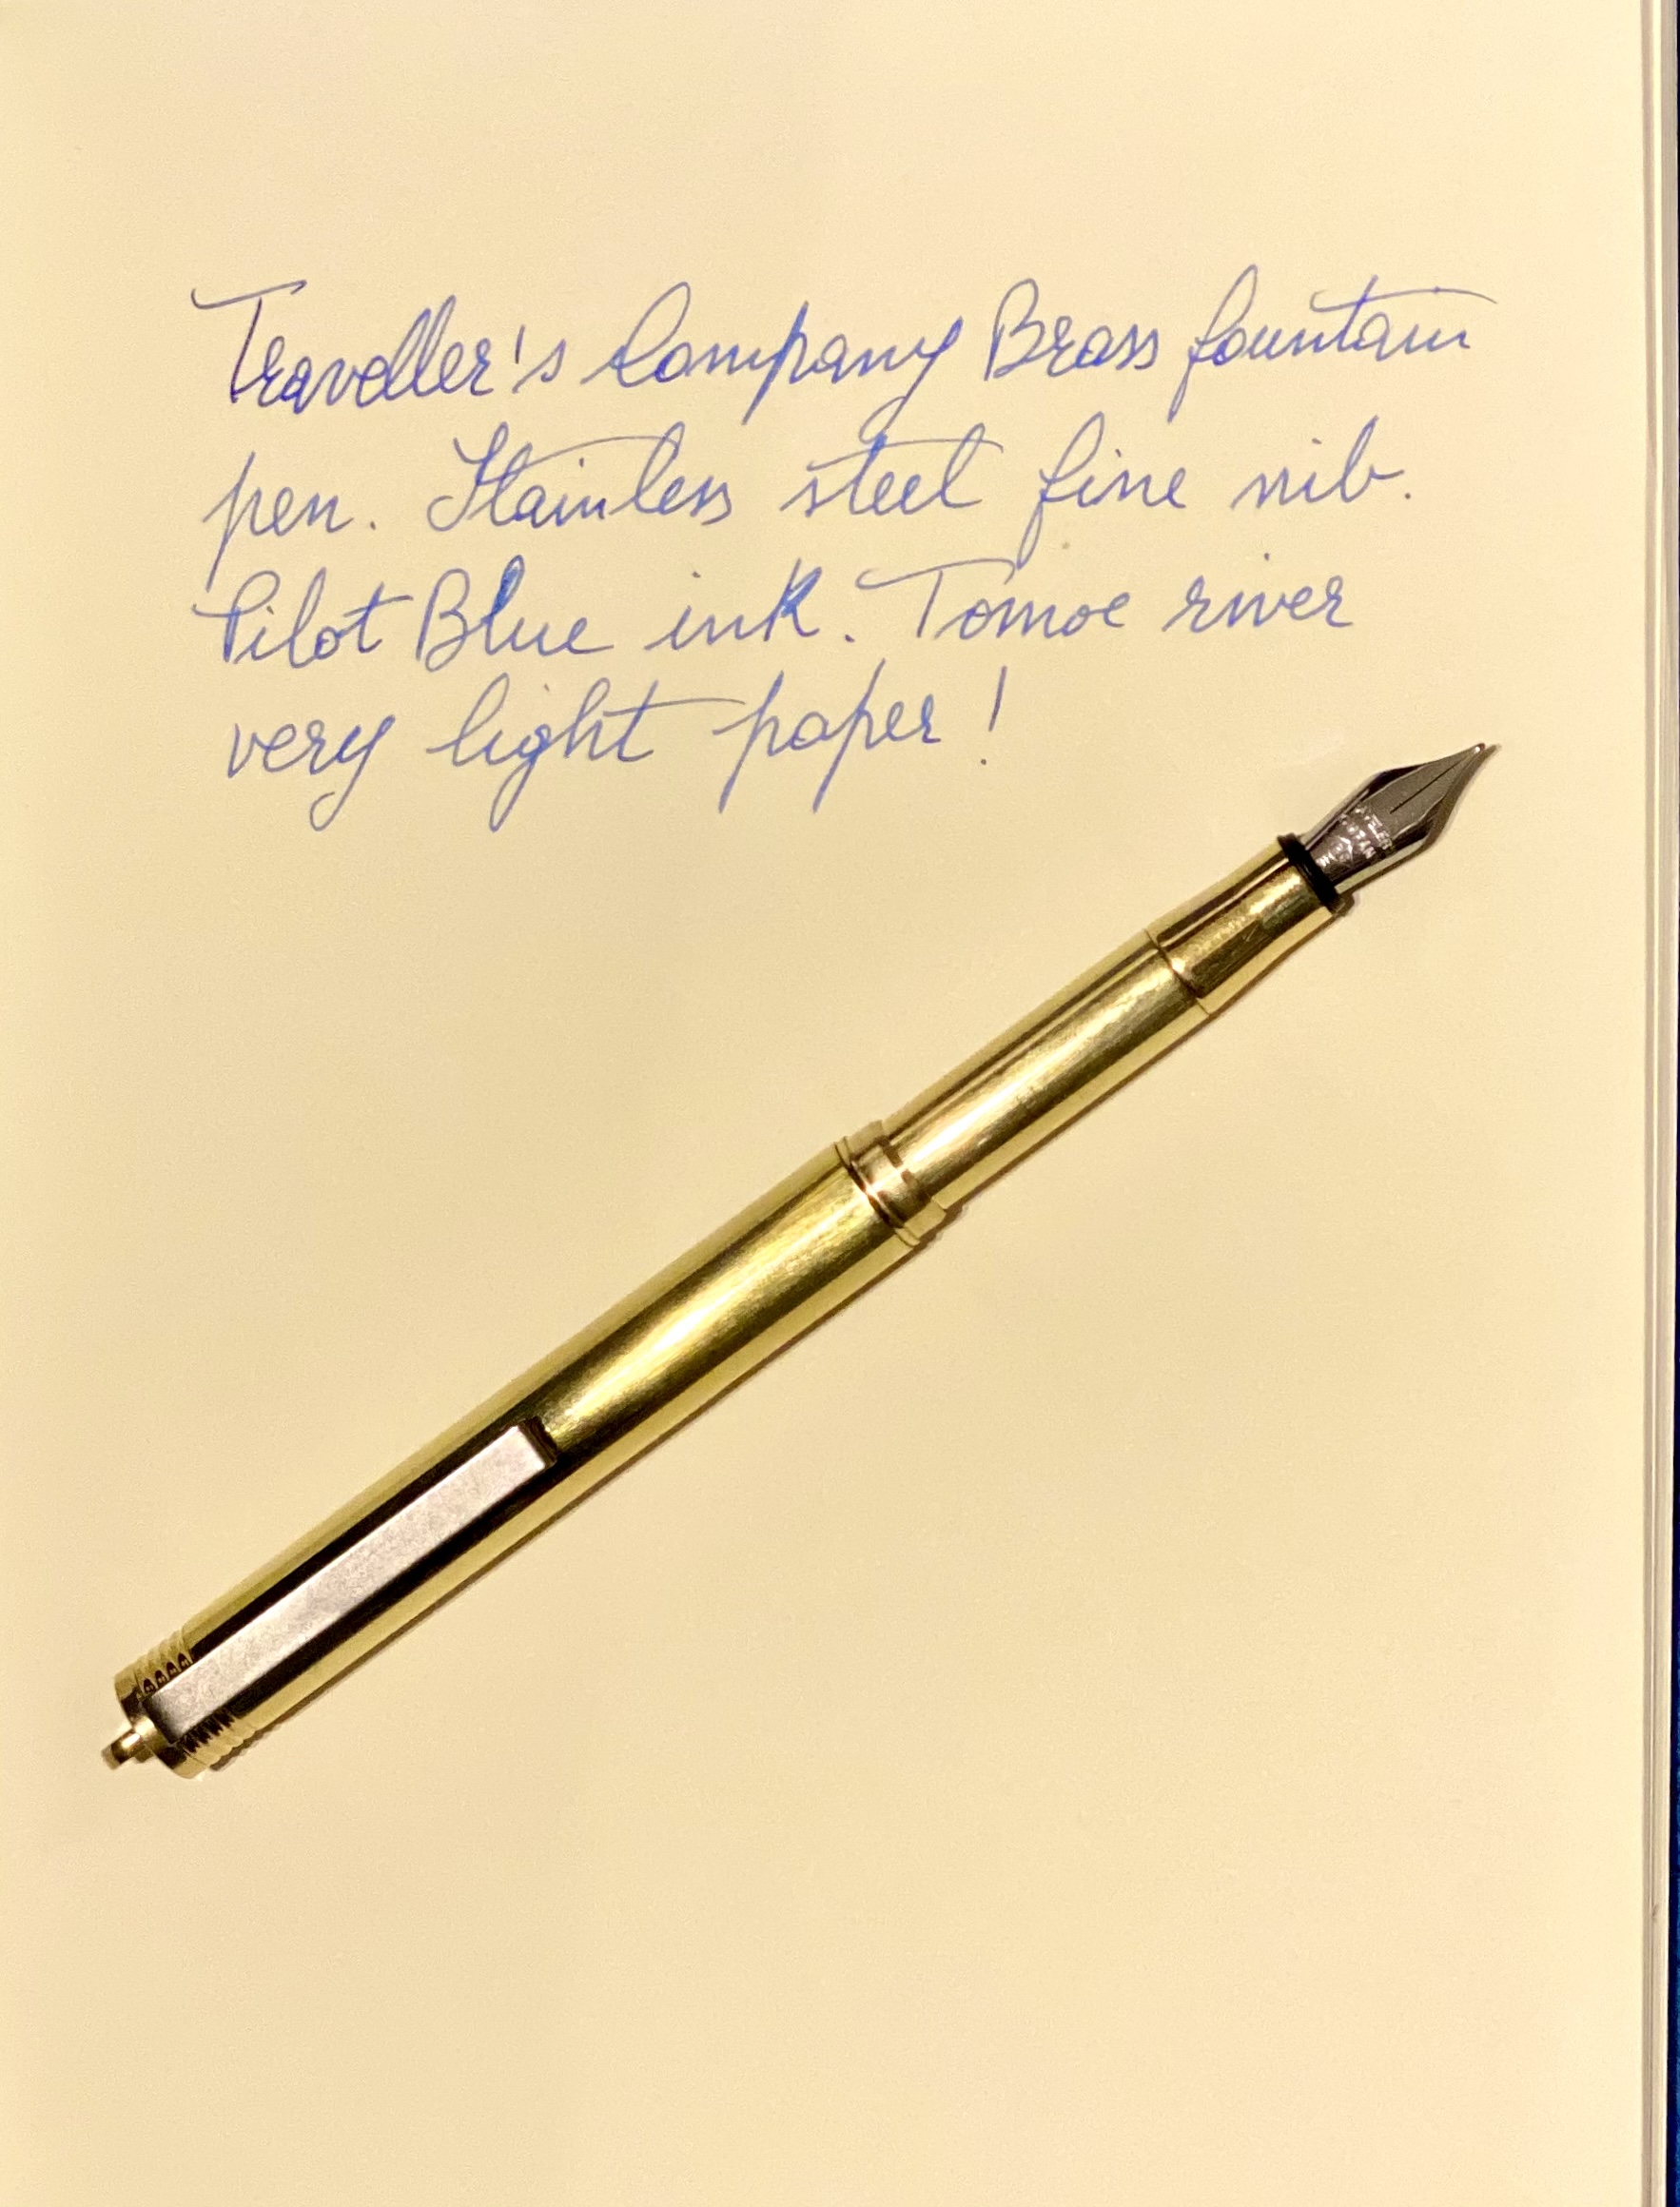 Traveller's Company Brass fountain
pen. Stainless steel fine nib.
Pilot Blue ink. Tomoe river
very light paper!